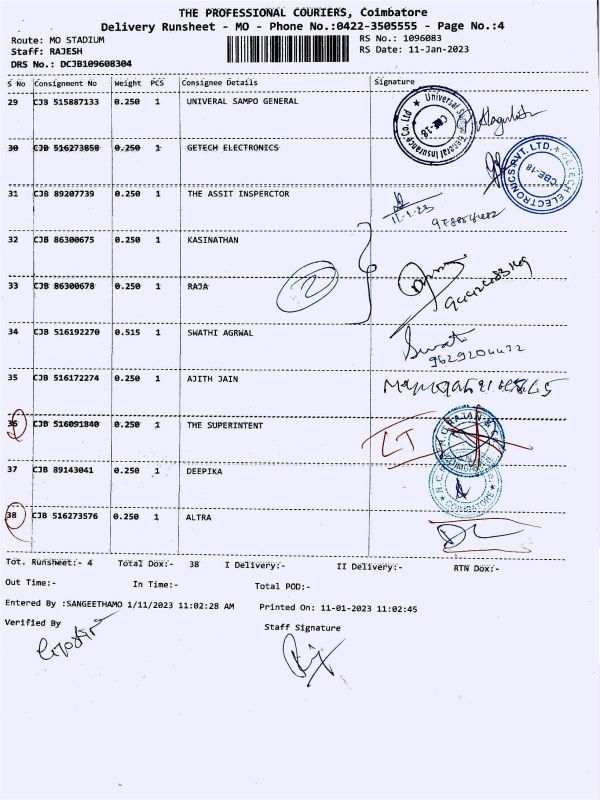 THE PROFESSIONAL COURIERS, Coimbatore
Delivery Runsheet - MO - Phone No.:0422-3505555 - Page No.:4
Route: MO STADIUM
RS No.: 1096083
Staff: RAJESH
RS Date: 11-Jan-2023
DRS No.: DCJB109608304
S No Consignment No Weight PCS Consignee Details Signature
29 CJB 515887133 0.250 1 UNIVERAL SAMPO GENERAL
Universal Sompo General Insurance Co. Ltd
CBE-18
30 CJB 516273850 0.250 1 GETECH ELECTRONICS
GETECH ELECTRONICS PVT. LTD.
CBE-18
31 CJB 89207739 0.250 1 THE ASSIT INSPERCTOR
11-1-23
32 CJB 86300675 0.250 1 KASINATHAN
2
33 CJB 86300678 0.250 1 RAJA
34 CJB 516192270 0.515 1 SWATHI AGRWAL
9629204472
35 CJB 516172274 0.250 1 AJITH JAIN
36 CJB 516091840 0.250 1 THE SUPERINTENT
LT
37 CJB 89143041 0.250 1 DEEPIKA
COIMBATORE
38 CJB 516273576 0.250 1 ALTRA
DL
Tot. Runsheet:- 4 Total Dox:- 38 I Delivery:- II Delivery:- RTN Dox:-
Out Time:- In Time:- Total POD:-
Entered By :SANGEETHAMO 1/11/2023 11:02:28 AM Printed On: 11-01-2023 11:02:45
Verified By
Staff Signature